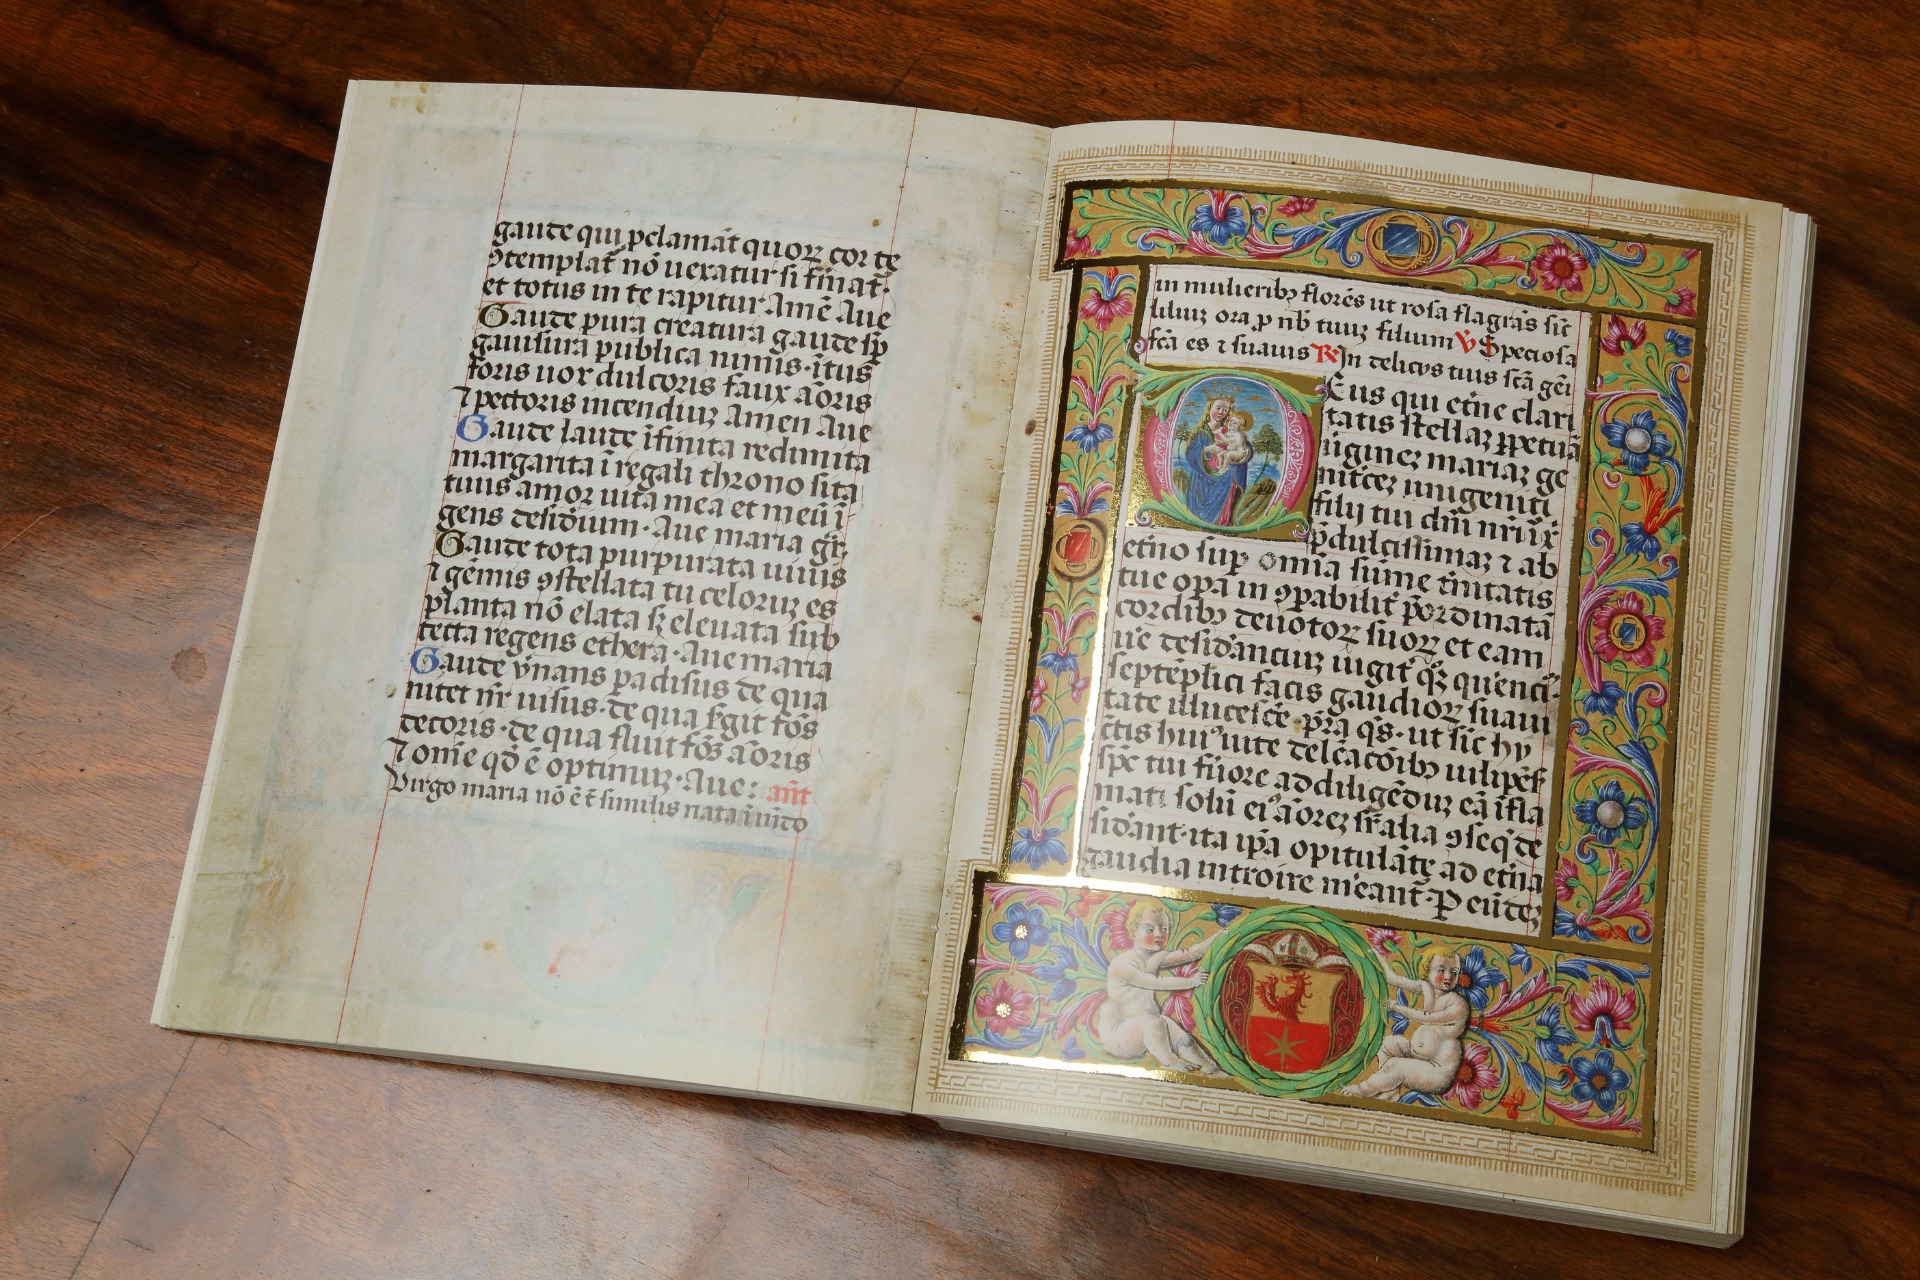 gaude qui ꝓclamāt quoꝝ cor te
ꝯtemplat̄ nō uexatur si
et totus in te rapitur Amē Aue
Gaude pura creatura gaude
gausura publica nimis ītus
foris uox dulcoris faux
⁊ pectoris incendiuꝫ Amen Aue
Gaude laude īfinita redimita
margarita ī regali throno sita
tuus amor uita mea et meū ī
gens desidium Aue maria gr̄
Gaude tota purpurata uiuis
⁊ gēmis ꝯstellata tu celoruꝫ es
planta nō elata sꝫ eleuata sub
tecta regens ethera Aue maria
Gaude v̄nans ꝑadisus de qua
nitet nr̄ uisus de qua fōs
decoris de qua fluit fōs
⁊ om̄e qd̄ ē optimuꝫ Aue: an̄t
Virgo maria nō ē t̄ similis nata ī mūdo
in mulieribꝫ florēs ut rosa flagrās sic
liliuꝫ ora ꝓ nb̄ tuuꝫ filium ℣ Speciosa
fc̄a es ⁊ suauis ℟ In delicys tuis sc̄a gēi
Eus qui et̄ne clari
tatis stellaꝫ ꝑpetuā
uigineꝫ mariaꝫ ge
nit̄ceꝫ unigeniti
filij tui dn̄i nr̄i
dulcissimaꝫ ⁊ ab
et̄no suꝑ om̄ia sūme t̄nitatis
tue oꝑa in ꝯꝑabilit̄ p̄ordinatā
cordibꝫ deuotoꝝ suoꝝ et eam
desid̄antiuꝫ iugit̄ qͥ
septēplici facis gaudioꝝ suaui
tate illucesc̄e p̄ra qs̄ ut sic hy
c̄tis huiꝰ uite
sp̄c tui ad diligēduꝫ eā īfla
mati soliī eiꝰ
sid̄ant ita ip̄a opitulāte ad et̄na
gaudia introire m̄eant̄ P eūdeꝫ